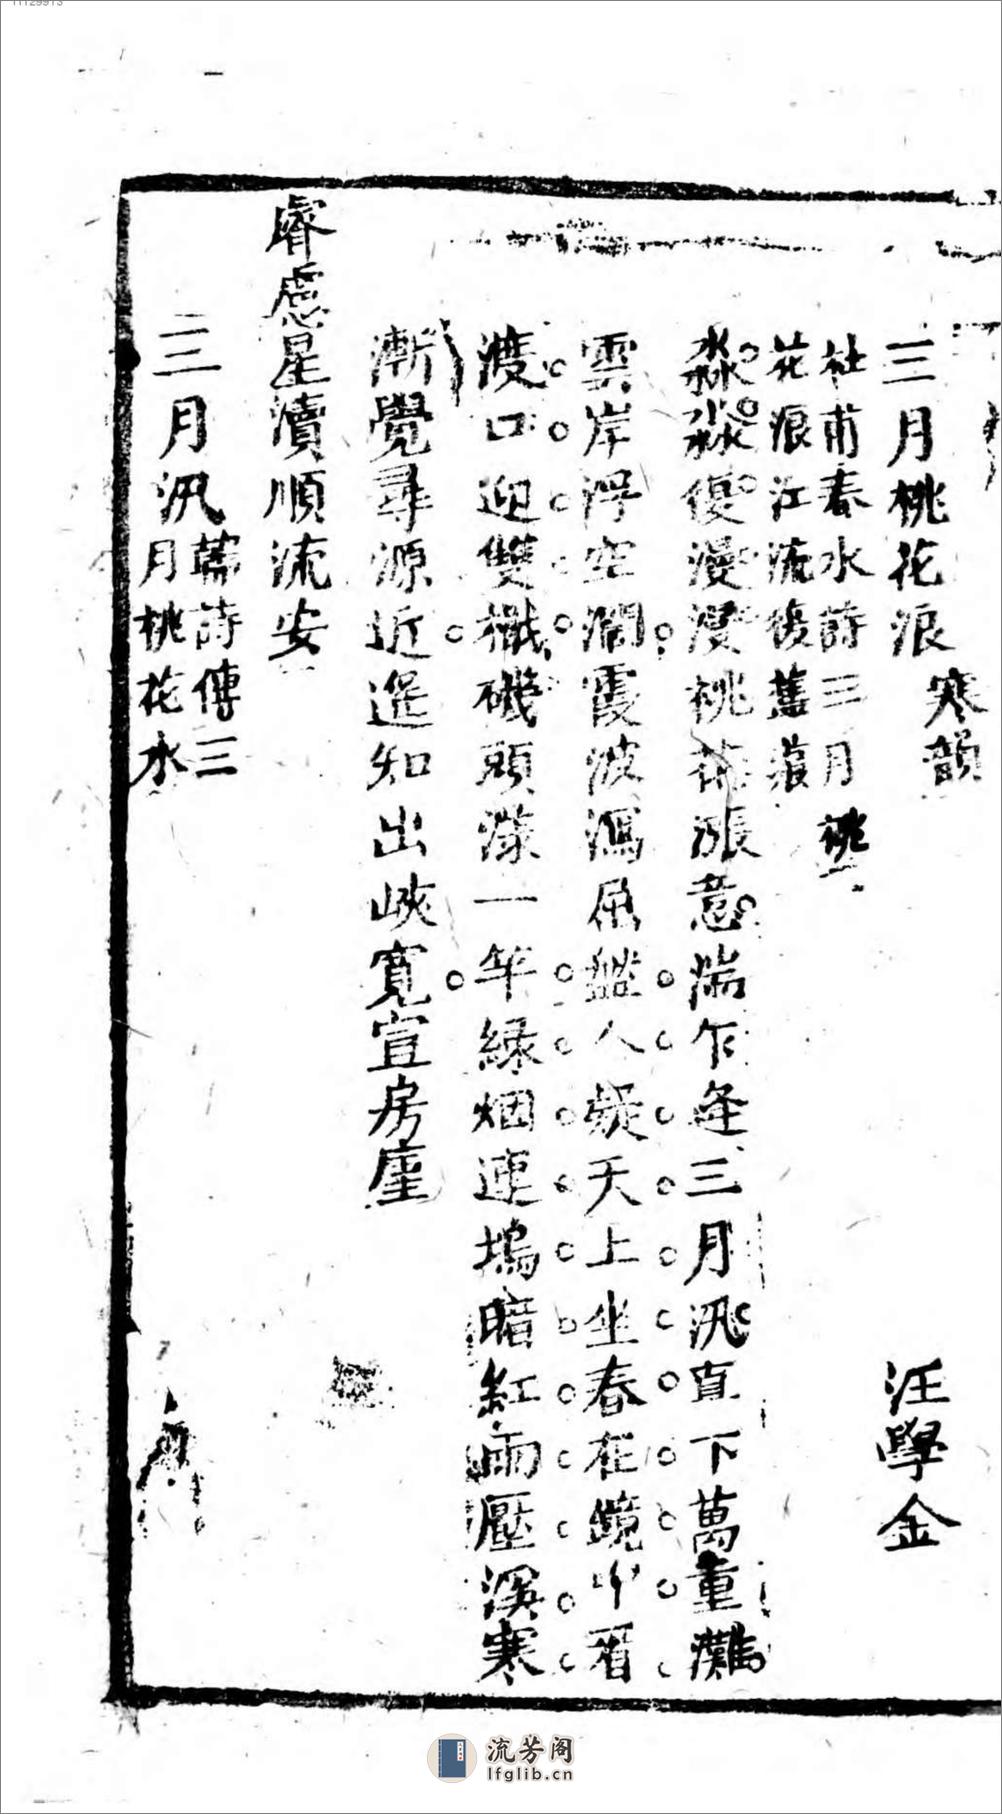 三月桃花浪 寒韻 汪學金
杜甫春水詩三月桃
花浪江流復舊痕
淼淼復漫漫桃花漲意湍乍逢三月汛直下萬重灘
雲岸浮空濶霞波瀉 人疑天上坐春在鏡中看
渡口迎雙檝磯頭漾一竿綠烟連塢暗紅雨壓溪寒
漸覺尋源近遥知出峽寬宣房廑
睿慮星瀆順流安
三月汛 韓詩傳三
月桃花水
流芳阁
lfglib.cn